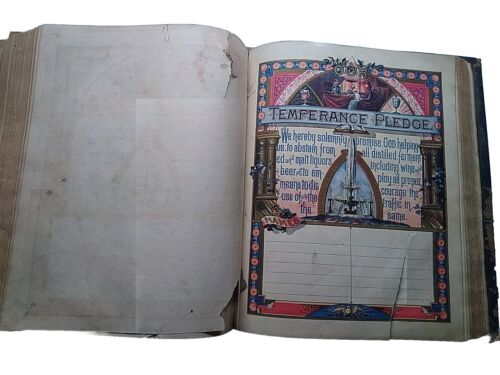 TEMPERANCE PLEDGE.
We hereby solemnly promise, God helping
us, to abstain from all distilled, ferment
ed and malt liquors including wine and
beer, and to em ploy all proper
means to dis courage the
use of and traffic in
the same.
NAMES